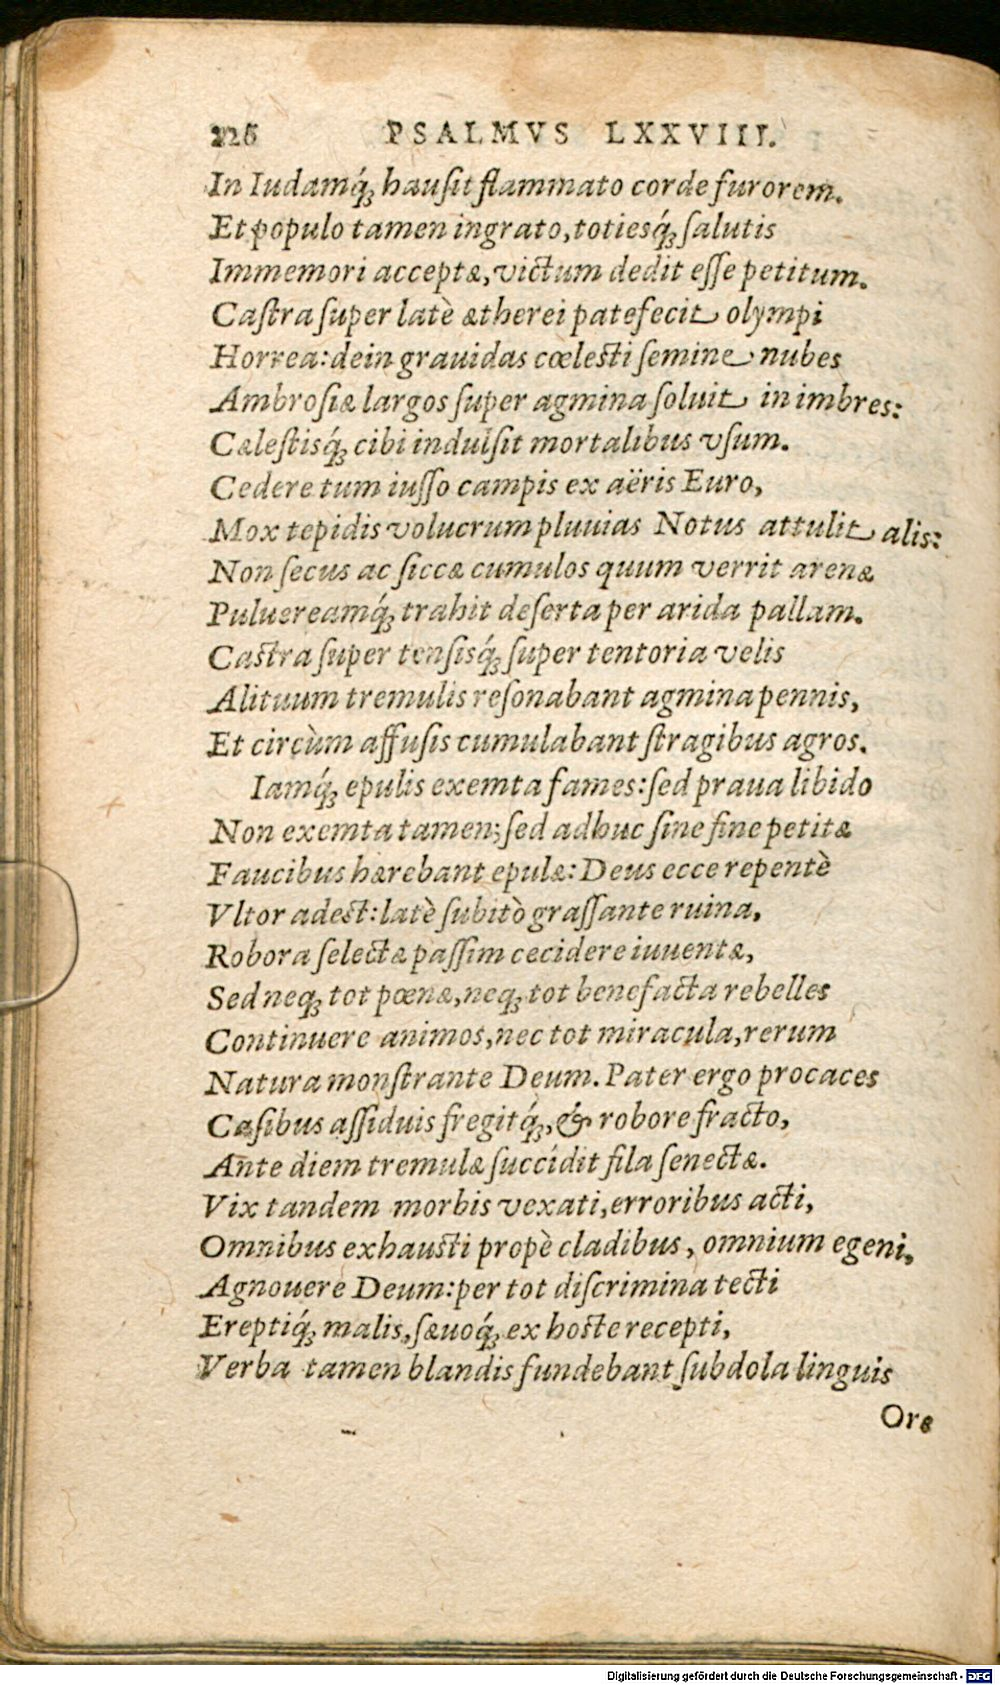 226 PSALMVS LXXVIII.
In Iudamq́ꝫ hauſit flammato corde furorem.
Et populo tamen ingrato, totiesq́ꝫ ſalutis
Immemori acceptæ, victum dedit eſſe petitum.
Caſtra ſuper latè ætherei patefecit olympi
Horrea: dein grauidas cœleſti ſemine nubes
Ambroſiæ largos ſuper agmina ſoluit in imbres:
Cæleſtisq́ꝫ cibi indulſit mortalibus vſum.
Cedere tum iuſſo campis ex aëris Euro,
Mox tepidis volucrum pluuias Notus attulit alis:
Non ſecus ac ſiccæ cumulos quum verrit arenæ
Puluereamq́ꝫ trahit deſerta per arida pallam.
Caſtra ſuper tenſisq́ꝫ ſuper tentoria velis
Alituum tremulis reſonabant agmina pennis,
Et circùm affuſis cumulabant ſtragibus agros.
Iamq́ꝫ epulis exemta fames: ſed praua libido
Non exemta tamen; ſed adhuc ſine fine petitæ
Faucibus hærebant epulæ: Deus ecce repentè
Vltor adeſt: latè ſubitò graſſante ruina,
Robora ſelectæ paſſim cecidere iuuentæ,
Sed neqꝫ tot pœnæ, neqꝫ tot benefacta rebelles
Continuere animos, nec tot miracula, rerum
Natura monſtrante Deum. Pater ergo procaces
Caſibus aſſiduis fregitq́ꝫ, & robore fracto,
Ante diem tremulæ ſuccidit fila ſenectæ.
Vix tandem morbis vexati, erroribus acti,
Omnibus exhauſti propè cladibus, omnium egeni,
Agnouere Deum: per tot diſcrimina tecti
Ereptiq́ꝫ malis, ſæuoq́ꝫ ex hoſte recepti,
Verba tamen blandis fundebant ſubdola linguis
Oræ
Digitalisierung gefördert durch die Deutsche Forschungsgemeinschaft - DFG